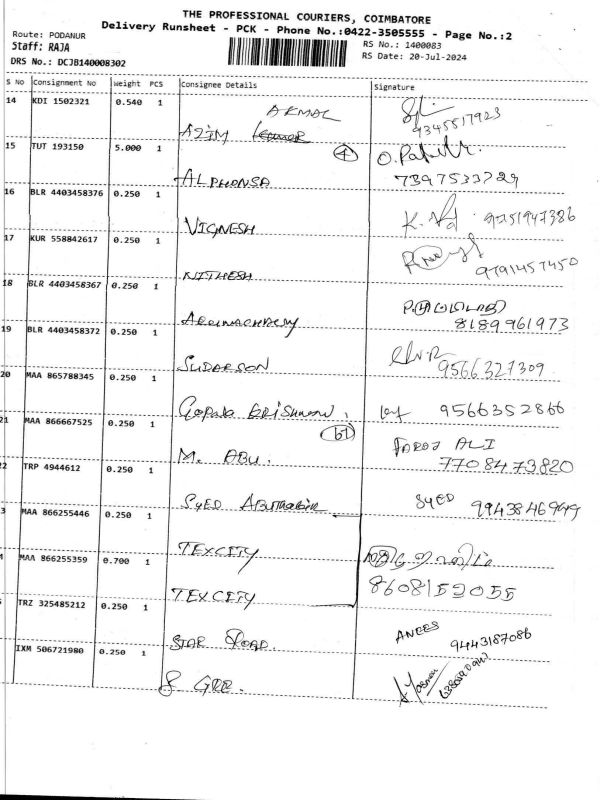 THE PROFESSIONAL COURIERS, COIMBATORE
Delivery Runsheet - PCK - Phone No.:0422-3505555 - Page No.:2
Route: PODANUR
Staff: RAJA
RS No.: 1400083
DRS No.: DCJB140008302
RS Date: 20-Jul-2024
S No Consignment No Weight PCS Consignee Details Signature
14 KDI 1502321 0.540 1 AKMAL
AZIM
9345517923
15 TUT 193150 5.000 1 4
ALPHONSA 7397533729
16 BLR 4403458376 0.250 1
VIGNESH 9751947386
17 KUR 558842617 0.250 1
NITHESH 9791457450
18 BLR 4403458367 0.250 1
8189961973
19 BLR 4403458372 0.250 1
SUDARSON 9566327309
20 MAA 865788345 0.250 1
Gopala Krishnan. 9566352866
21 MAA 866667525 0.250 1
M. ABU. FAROJ ALI
7708473820
2 TRP 4944612 0.250 1
SYED SYED 9943846949
3 MAA 866255446 0.250 1
TEXCITY
4 MAA 866255359 0.700 1
TEXCITY 8608152055
TRZ 325485212 0.250 1
STAR ANEES 9443187086
IXM 506721980 0.250 1